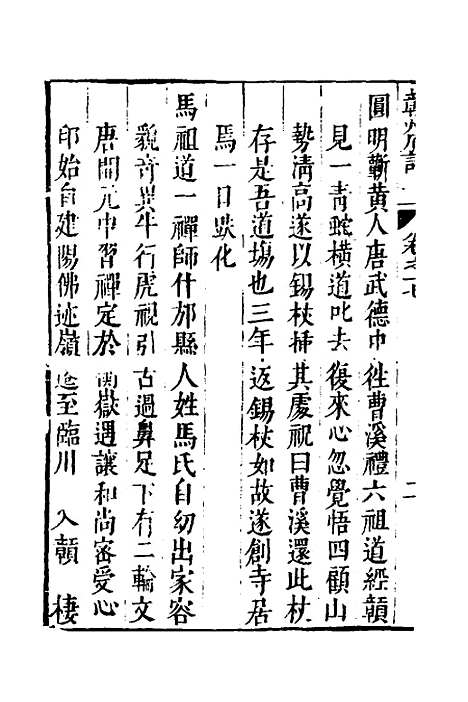 贛州府志 卷之十七 二
圓明蘄黃人唐武德中往曹溪禮六祖道經贛
見一靑蛇橫道叱去復來心忽覺悟四顧山
勢淸高遂以錫杖揷其處祝曰曹溪還此杖
存是吾道場也三年返錫杖如故遂創寺居
焉一日趺化
馬祖道一禪師什邡縣人姓馬氏自幼出家容
貌竒異牛行虎視引古過鼻足下有二輪文
唐開元中習禪定於衡嶽遇讓和尚密受心
印始自建陽佛迹嶺迄至臨川 入贛 棲